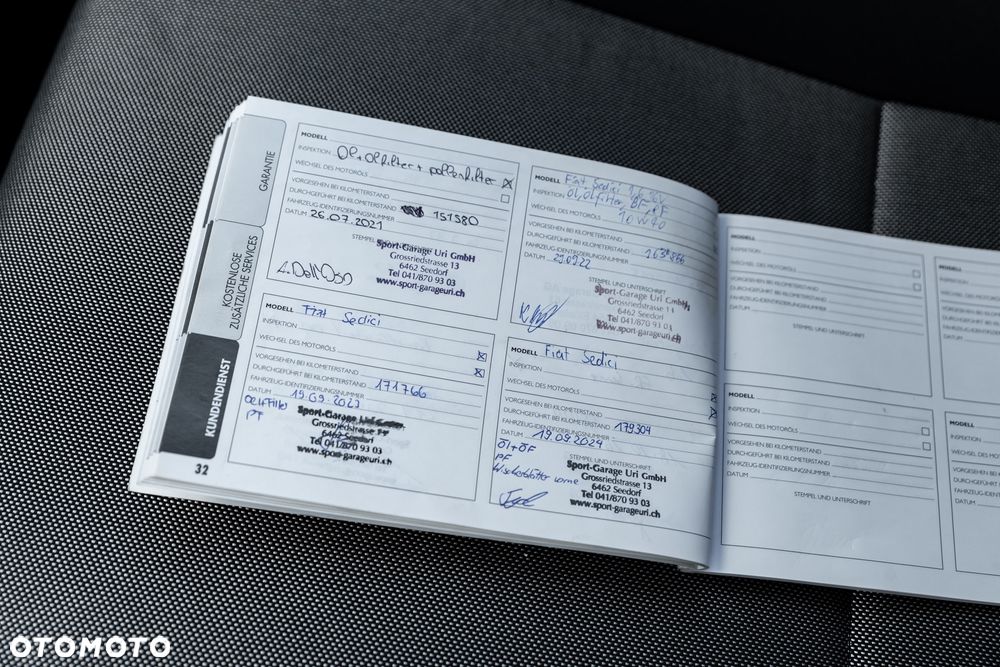 GARANTIE
KOSTENLOSE
ZUSÄTZLICHE SERVICES
KUNDENDIENST
32
MODELL
INSPEKTION Öl + Ölfilter + pollenfilter
WECHSEL DES MOTORÖLS
VORGESEHEN BEI KILOMETERSTAND
DURCHGEFÜHRT BEI KILOMETERSTAND
FAHRZEUG-IDENTIFIZIERUNGSNUMMER 151580
DATUM 26.07.2021
STEMPEL
Sport-Garage Uri GmbH
Grossriedstrasse 13
6462 Seedorf
Tel 041/870 93 03
www.sport-garageuri.ch
MODELL Fiat Sedici 1.6 16V
INSPEKTION Öl, Ölfilter,
WECHSEL DES MOTORÖLS 10W40
VORGESEHEN BEI KILOMETERSTAND
DURCHGEFÜHRT BEI KILOMETERSTAND
FAHRZEUG-IDENTIFIZIERUNGSNUMMER
DATUM
STEMPEL UND UNTERSCHRIFT
Sport-Garage Uri GmbH
Grossriedstrasse 13
6462 Seedorf
Tel 041/870 93 03
www.sport-garageuri.ch
MODELL Fiat Sedici
INSPEKTION
WECHSEL DES MOTORÖLS
VORGESEHEN BEI KILOMETERSTAND
DURCHGEFÜHRT BEI KILOMETERSTAND 171766
FAHRZEUG-IDENTIFIZIERUNGSNUMMER
DATUM 19.09.2023
PF
Sport-Garage Uri GmbH
Grossriedstrasse 13
6462 Seedorf
Tel 041/870 93 03
www.sport-garageuri.ch
MODELL Fiat Sedici
INSPEKTION
WECHSEL DES MOTORÖLS
VORGESEHEN BEI KILOMETERSTAND
DURCHGEFÜHRT BEI KILOMETERSTAND 179304
FAHRZEUG-IDENTIFIZIERUNGSNUMMER
DATUM 19.09.2024
Öl + ÖF
PF
Wischerblätter vorne
STEMPEL UND UNTERSCHRIFT
Sport-Garage Uri GmbH
Grossriedstrasse 13
6462 Seedorf
Tel 041/870 93 03
www.sport-garageuri.ch
MODELL
INSPEKTION
WECHSEL DES MOTORÖLS
VORGESEHEN BEI KILOMETERSTAND
DURCHGEFÜHRT BEI KILOMETERSTAND
FAHRZEUG-IDENTIFIZIERUNGSNUMMER
DATUM
STEMPEL UND UNTERSCHRIFT
MODELL
INSPEKTION
WECHSEL DES MOTORÖLS
VORGESEHEN BEI KILOMETERSTAND
DURCHGEFÜHRT BEI KILOMETERSTAND
FAHRZEUG-IDENTIFIZIERUNGSNUMMER
DATUM
STEMPEL UND UNTERSCHRIFT
MODELL
INSPEKTION
DATUM
MODELL
INSPEKTION
DATUM
OTOMOTO